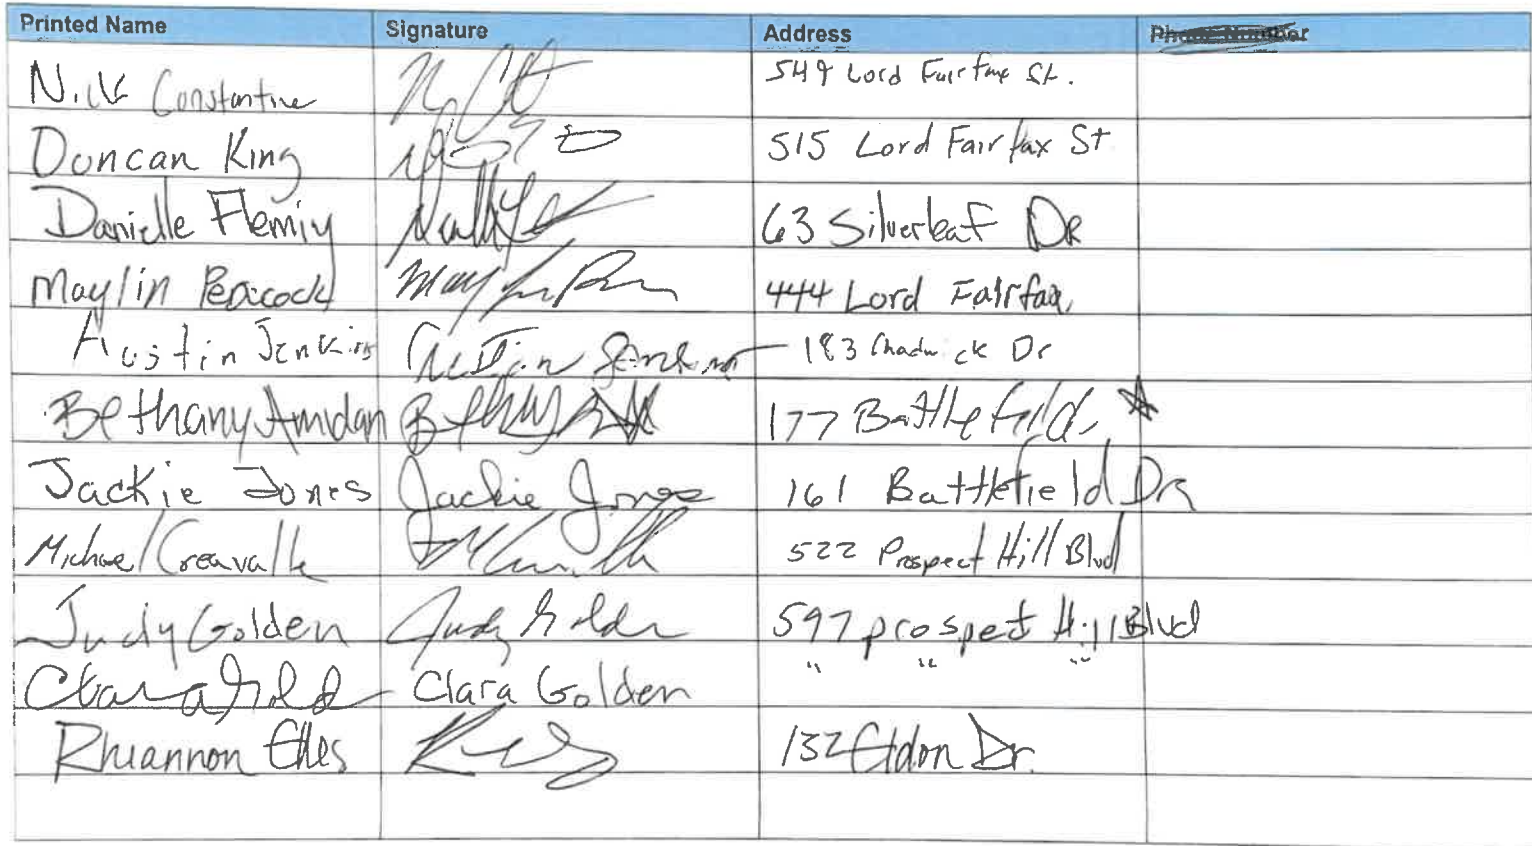 Printed Name Signature Address Phone Number
Nick Constantine 549 Lord Fairfax St.
Duncan King 515 Lord Fairfax St
Danielle Flemiy 63 Silverleaf DR
Maylin Peacock 444 Lord Fairfax
Austin Jenkins Austin Jenkins 183 Chadwick Dr
Bethany Amidan 177 Battlefield
Jackie Jones Jackie Jones 161 Battlefield Dr
Michael Creavalle 522 Prospect Hill Blvd
Judy Golden Judy Golden 597 prospect Hill Blvd
Clara Gold Clara Golden " " "
Rhiannon 132 Eldon Dr.